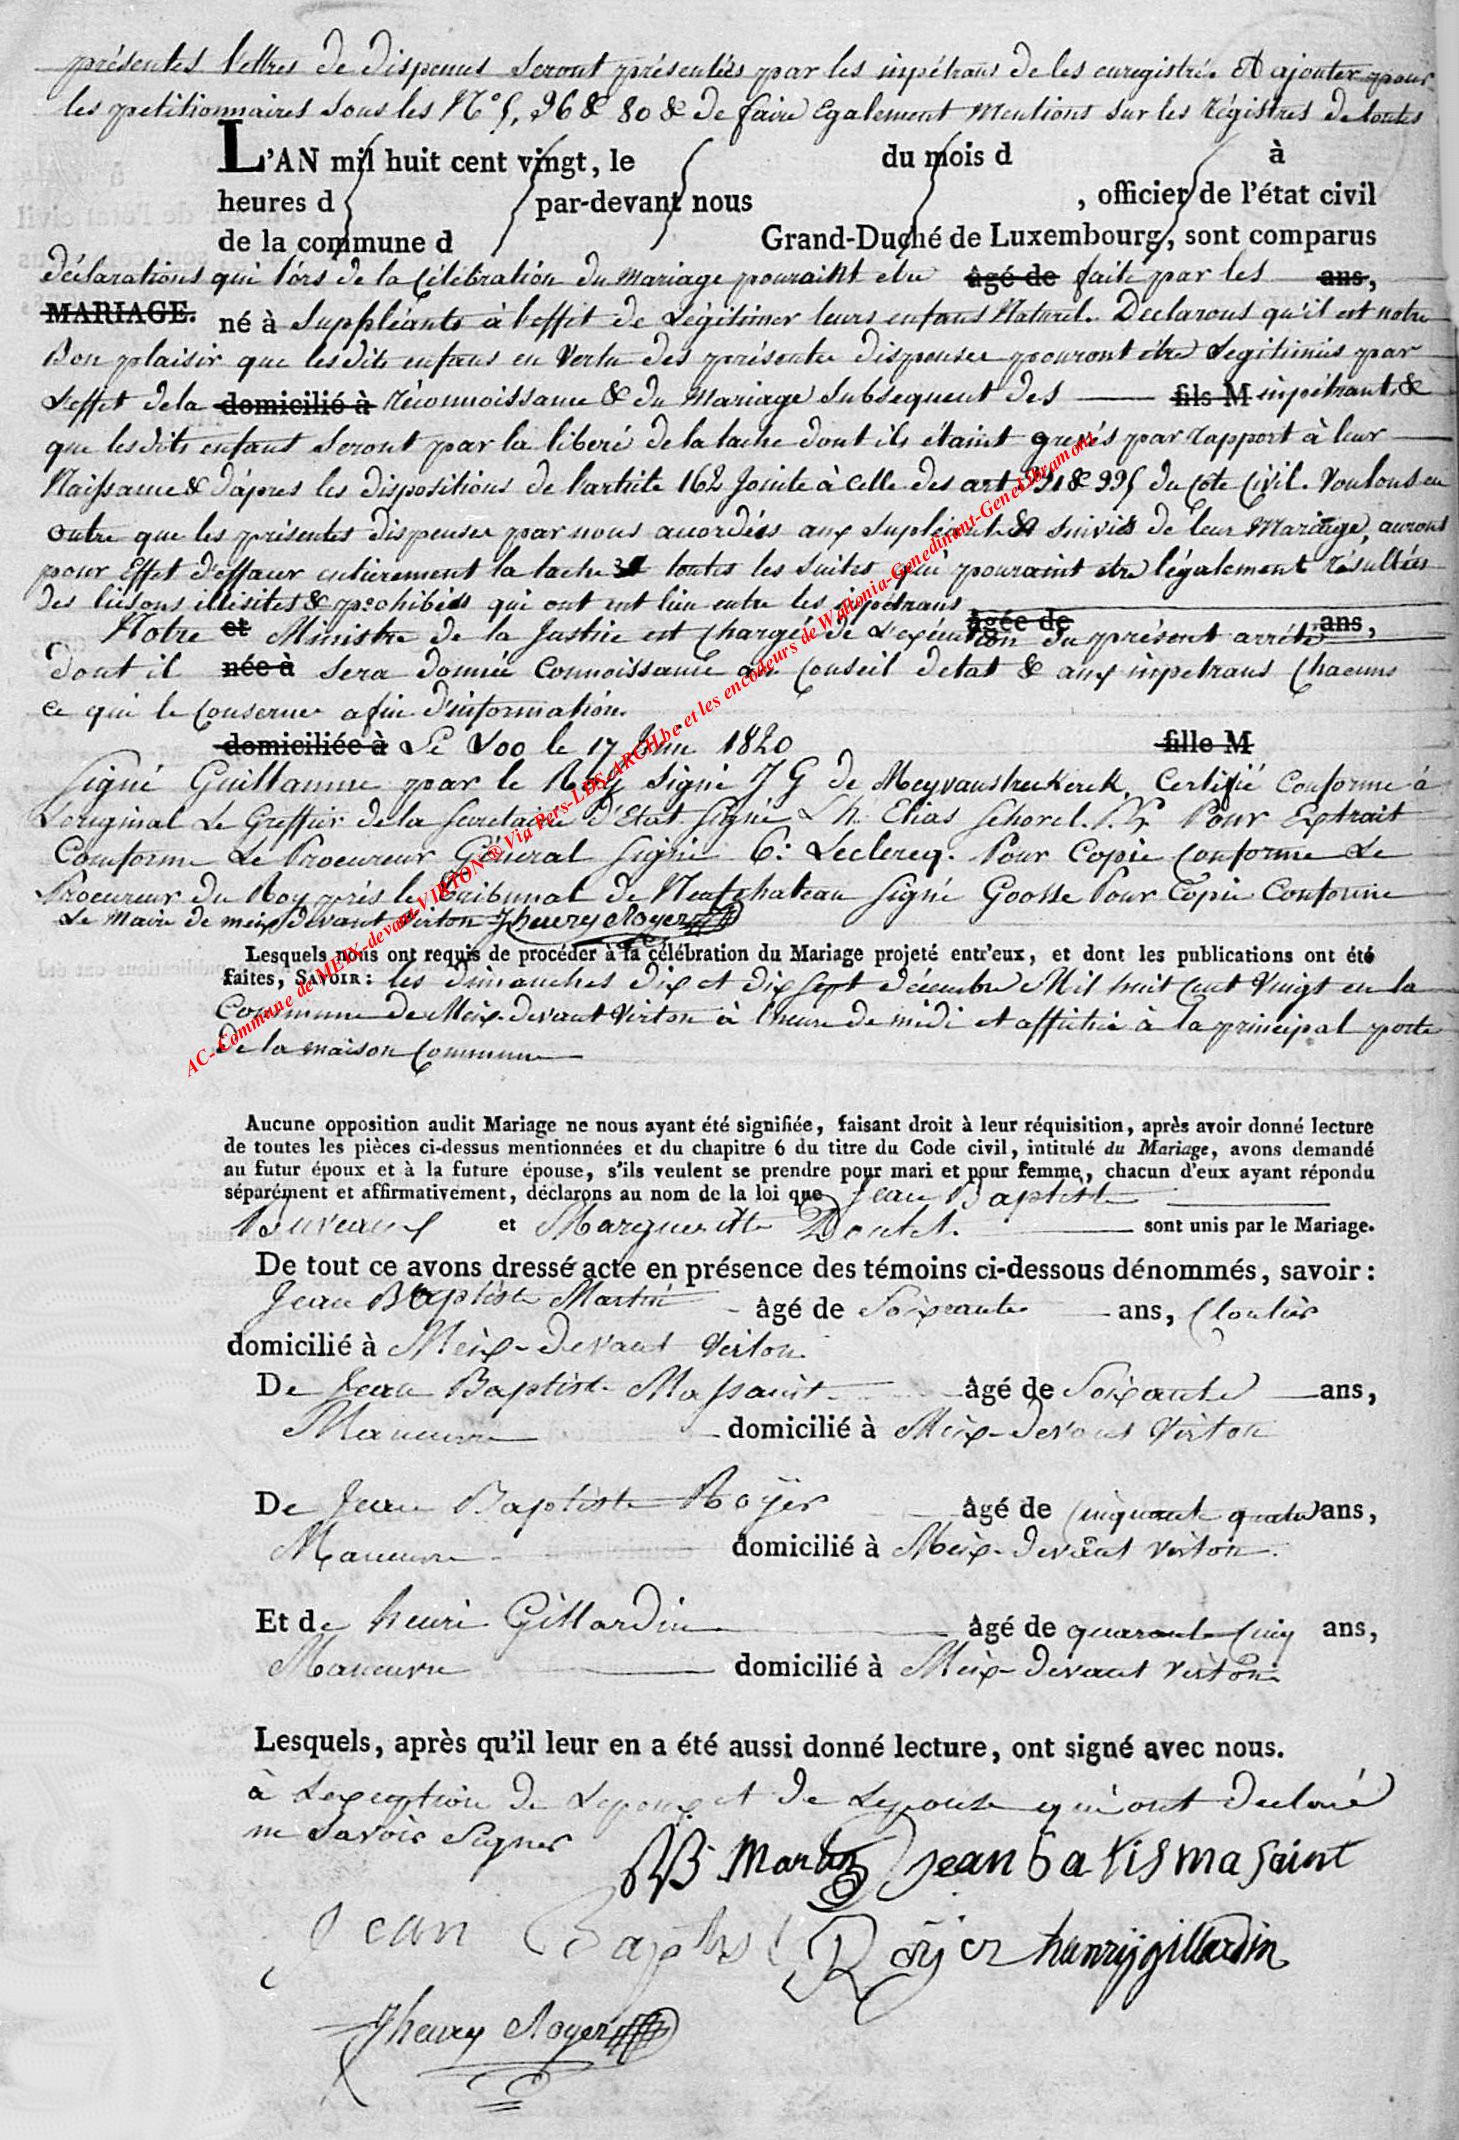 présentes lettres de dispenses seront présentées par les impétrans de les enregistré. Et ajouter pour
les petitionnaires sous les Nos 5, 96 & 80 & de faire Egalement Mentions sur les régistres de toutes
L'AN mil huit cent vingt, le du mois d à
heures d par-devant nous , officier de l'état civil
de la commune d Grand-Duché de Luxembourg, sont comparus
déclarations qui lors de la Célébration du mariage pouraint etre âgé de faite par les ans,
MARIAGE. né à Suppléants à l'effet de Légitimer leurs enfans Naturel. Declarons qu'il est notre
Bon plaisir que lesdits enfans en Vertu des présente dispenses pouront être Legitimés par
L'effet de la domicilié à réconnoissance & du mariage subsequent des fils M impétrants &
que lesdits enfans seront par la liberé de la tache dont ils étaint par rapport à leur
Naissance & d'après les dispositions de l'article 162 Jointe à celle des art 331 & 335 du Code Civil. Voulons en
outre que les présentes dispenses par nous accordées aux supléants & suivies de leur Mariage, aurons
pour Effet d'effacer entierement la tache toutes les suites qui pouraint etre légalement résultées
des liésons illisites & prohibées qui ont eut lieu entre les impétrans
Notre et Ministre de la Justice est Chargé de L'exécution âgée de du présent arrêté ans,
dont il née à sera donnée Connoissance au Conseil detat & aux impetrans Chacuns
ce qui le Conserne afin d'information.
domiciliée à Le Loo le 17 Juin 1820 fille M
Signé Guillaume par le Roy signé J G de Certifié Conforme à
L'original Le Greffier de la Secretairie d'Etat Signé L. h. Elias Schovel. Pour Extrait
Conforme Le Procureur Général Signé C: Leclercq. Pour Copie Conforme Le
Procureur du Roy près le Tribunal de Neufchateau Signé Goosse Pour Copie Conforme
Le Maire de meix devant Virton Jhenry Royer
Lesquels nous ont requis de procéder à la célébration du Mariage projeté entr'eux, et dont les publications ont été
faites, SAVOIR: les dimanches dix et dix sept décembre Mil huit cent Vingt en la
Commune de Meix-devant Virton à l'heure de midi et affichée à la principal porte
de la maison Commune
Aucune opposition audit Mariage ne nous ayant été signifiée, faisant droit à leur réquisition, après avoir donné lecture
de toutes les pièces ci-dessus mentionnées et du chapitre 6 du titre du Code civil, intitulé du Mariage, avons demandé
au futur époux et à la future épouse, s'ils veulent se prendre pour mari et pour femme, chacun d'eux ayant répondu
séparément et affirmativement, déclarons au nom de la loi que Jean Baptiste
Buveaux et Marguerite Doutet. sont unis par le Mariage.
De tout ce avons dressé acte en présence des témoins ci-dessous dénommés, savoir:
Jean Baptiste Martin âgé de Soixante ans, Cloutier
domicilié à Meix-devant Virton
De Jean Baptiste Massaint âgé de Soixante ans,
Maneuvre domicilié à Meix-devant Virton
De Jean Baptiste Royer âgé de Cinquante quatre ans,
Maneuvre domicilié à Meix-devant Virton
Et de henri Gillardin âgé de quarante Cinq ans,
Maneuvre domicilié à Meix-devant Virton
Lesquels, après qu'il leur en a été aussi donné lecture, ont signé avec nous.
à Lexeption de Lepoux et de Lepouse qui ont declaré
ne savoir Signer
JB Martin jean batis masaint
Jean Baptist Royer henry gillardin
Jhenry Royer
AC-Commune de MEIX-devant-VIRTON ® Via Pers-LDS-ARCH.be et les encodeurs de Waltonia-Genedinant-GeneLibramont